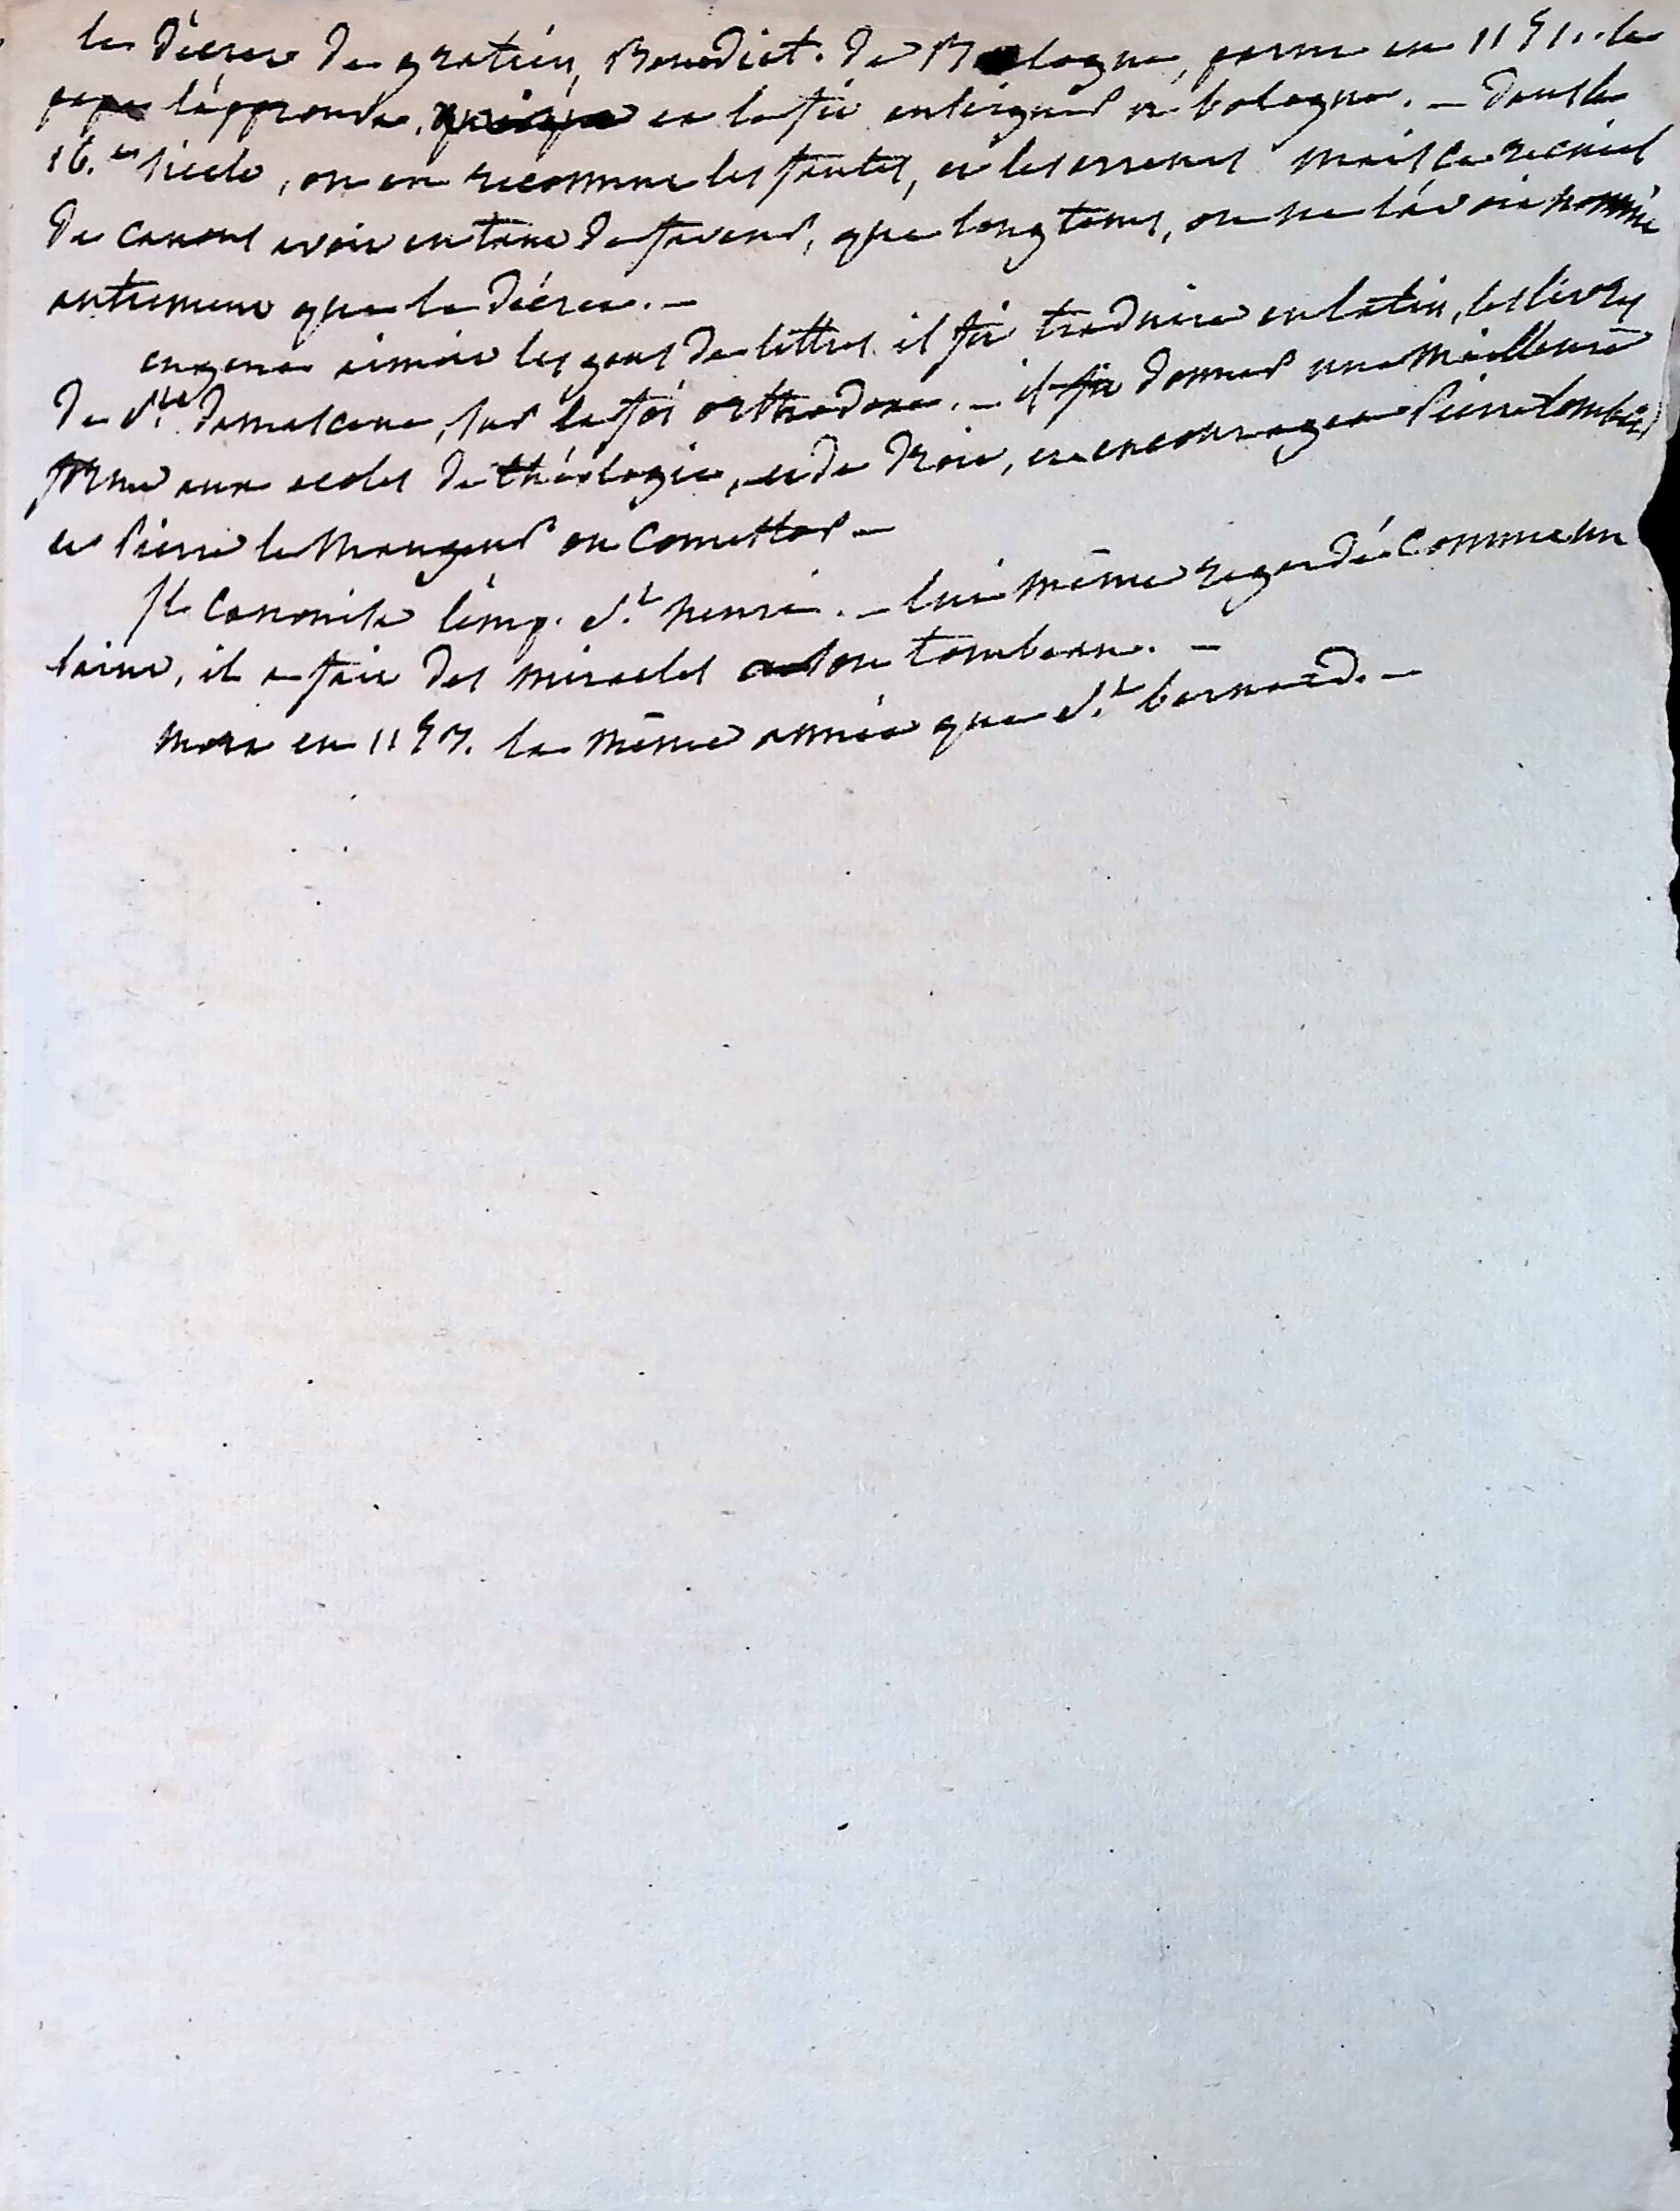 le décret de gratien, Benedict. de Bologne, parut en 1151. le
pape l'approuva, et le fit enseigner à bologne. — dans le
16.e siècle, on en reconnut les fautes, et les erreurs mais ce recueil
de canons avoit eu tant de faveur, que longtems, on ne l'avoit nommé
autrement que le décret. —
eugene aimoit les gens de lettres. il fit traduire en latin, les livres
de St damascene, sur la foi orthodoxe. — il fit donner une meilleure
forme aux ecoles de théologie, et de droit, et encouragea Pierre Lombard
et Pierre le mangeur ou Comestor —
Il canonisa l'emp. St henri. — lui même regardé comme un
saint, il a fait des miracles à son tombeau. —
mort en 1153. la même année que St bernard. —